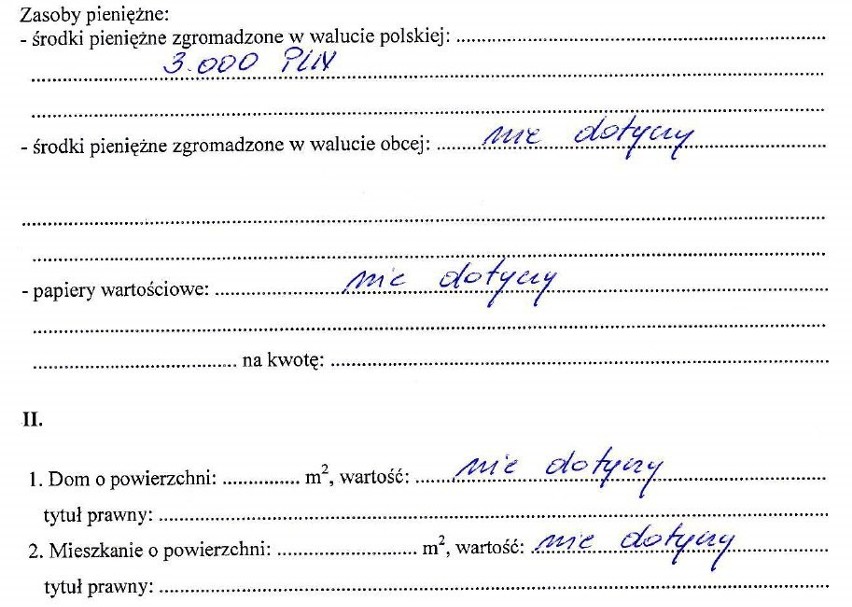 Zasoby pieniężne:
- środki pieniężne zgromadzone w walucie polskiej: ..............................
3.000 PLN
- środki pieniężne zgromadzone w walucie obcej: nie dotyczy
- papiery wartościowe: nie dotyczy
.................................. na kwotę: ..............................
II.
1. Dom o powierzchni: ............. m², wartość: nie dotyczy
tytuł prawny: ..............................
2. Mieszkanie o powierzchni: ....................... m², wartość: nie dotyczy
tytuł prawny: ..............................